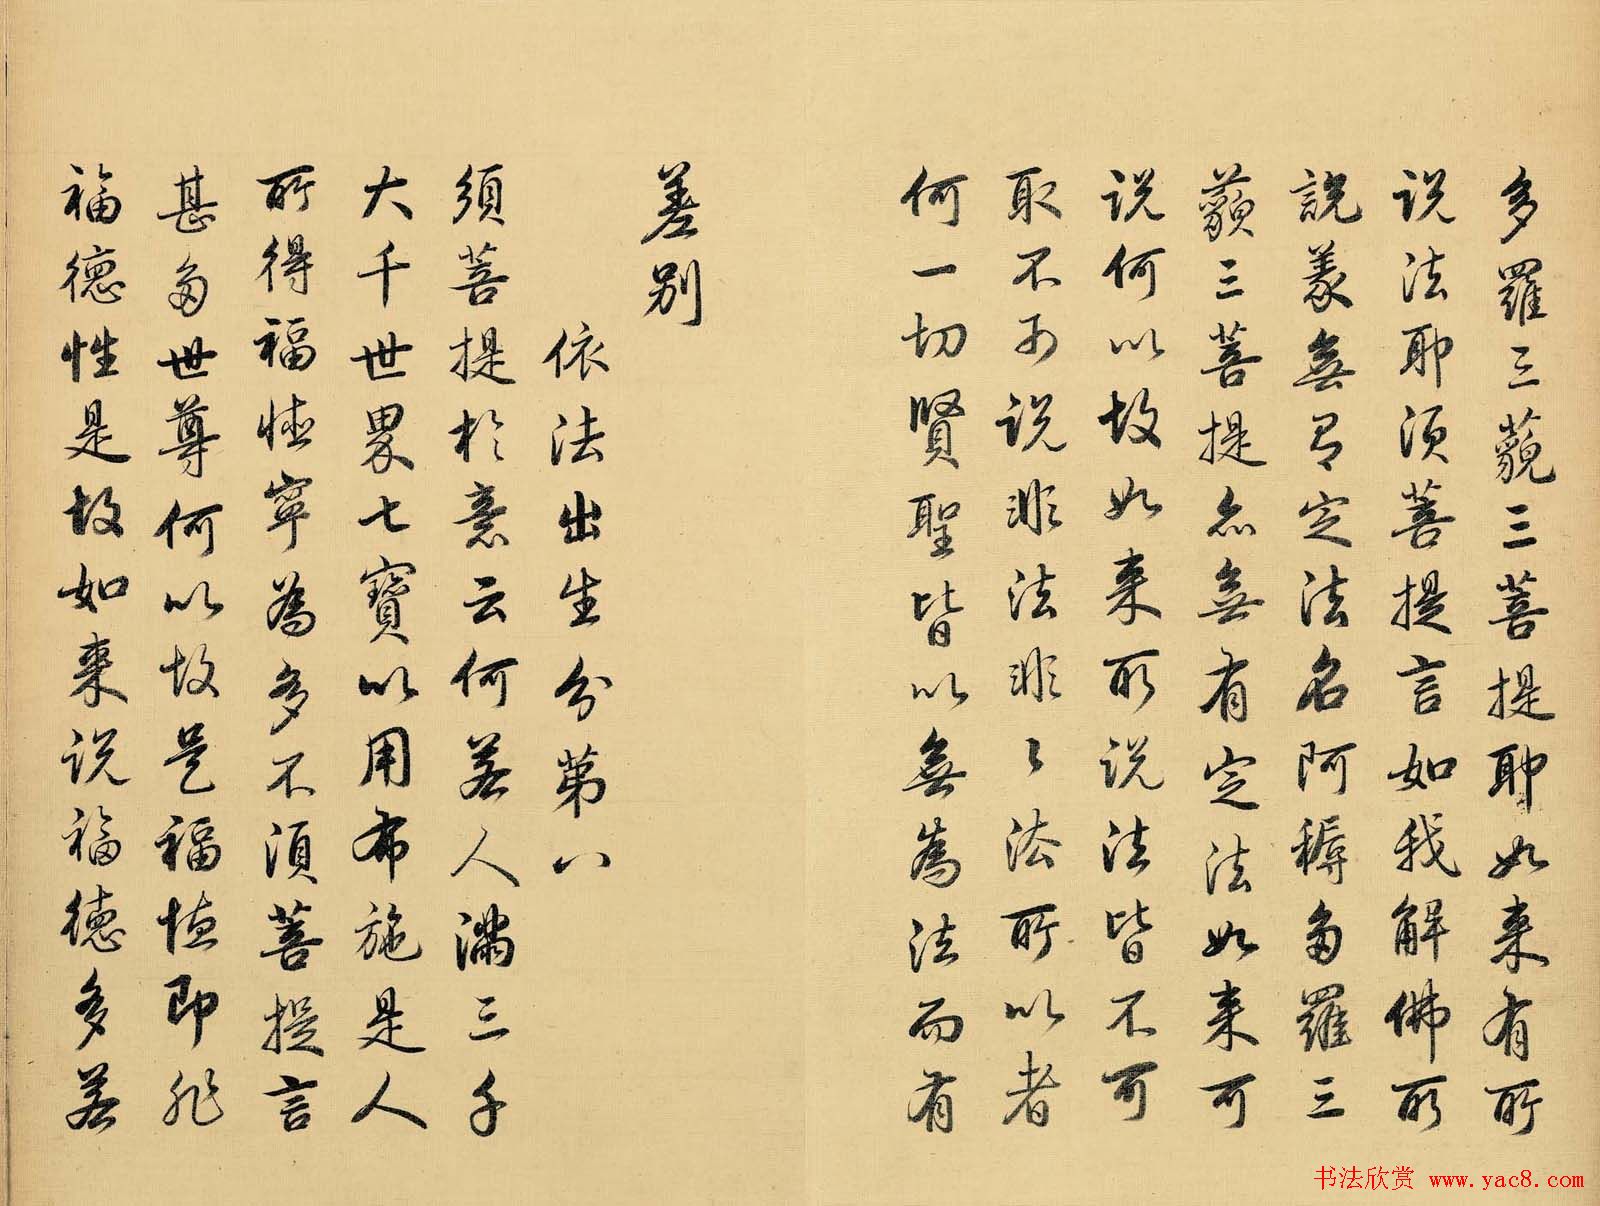 多羅三藐三菩提耶如来有所
说法耶须菩提言如我解佛所
說義無有定法名阿耨多羅三
藐三菩提亦無有定法如来可
说何以故如来所说法皆不可
取不可说非法非〻法所以者
何一切賢聖皆以無為法而有
差别
依法出生分第八
須菩提於意云何若人满三千
大千世界七寶以用布施是人
所得福德寧為多不須菩提言
甚多世尊何以故是福德即非
福德性是故如来说福德多若
书法欣赏 www.yac8.com